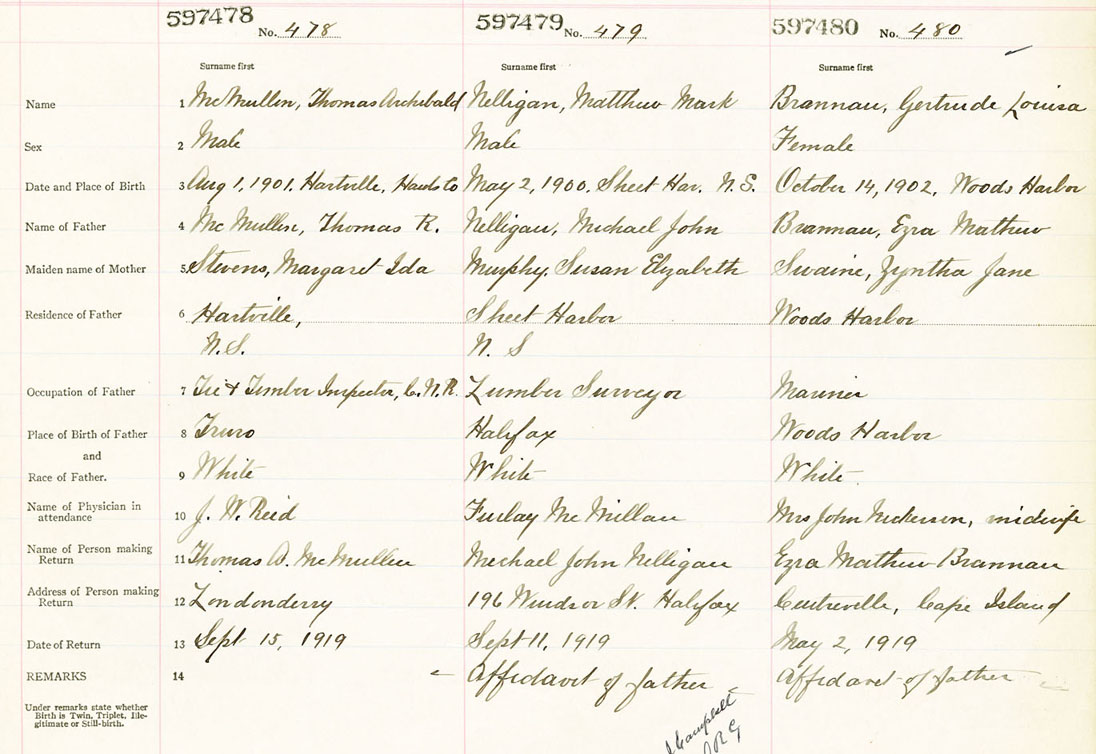 597478 No. 478 597479 No. 479 597480 No. 480
Surname first Surname first Surname first
Name 1 McMullen, Thomas Archibald Nelligan, Matthew Mark Brannan, Gertrude Louisa
Sex 2 Male Male Female
Date and Place of Birth 3 Aug 1, 1901. Hartville, Hants Co May 2, 1900. Sheet Har. N.S. October 14, 1902. Woods Harbor
Name of Father 4 McMullen, Thomas R. Nelligan, Michael John Brannan, Ezra Mathew
Maiden name of Mother 5 Stevens, Margaret Ida Murphy, Susan Elizabeth Swaine, Zyntha Jane
Residence of Father 6 Hartville, Sheet Harbor Woods Harbor
N.S. N. S
Occupation of Father 7 Tie & Timber Inspector, C.N.R. Lumber Surveyor Mariner
Place of Birth of Father 8 Truro Halifax Woods Harbor
and
Race of Father. 9 White White White
Name of Physician in
attendance 10 J. W. Reid Furlay McMillan Mrs John Nickerson, midwife
Name of Person making
Return 11 Thomas McMullen Michael John Nelligan Ezra Mathew Brannan
Address of Person making
Return 12 Londonderry 196 Windsor St. Halifax Centreville, Cape Island
Date of Return 13 Sept 15, 1919 Sept 11, 1919 May 2, 1919
REMARKS 14 Affidavit of father Affidavit of father
Under remarks state whether
Birth is Twin, Triplet, Ille-
gitimate or Still-birth.
Campbell
DRG